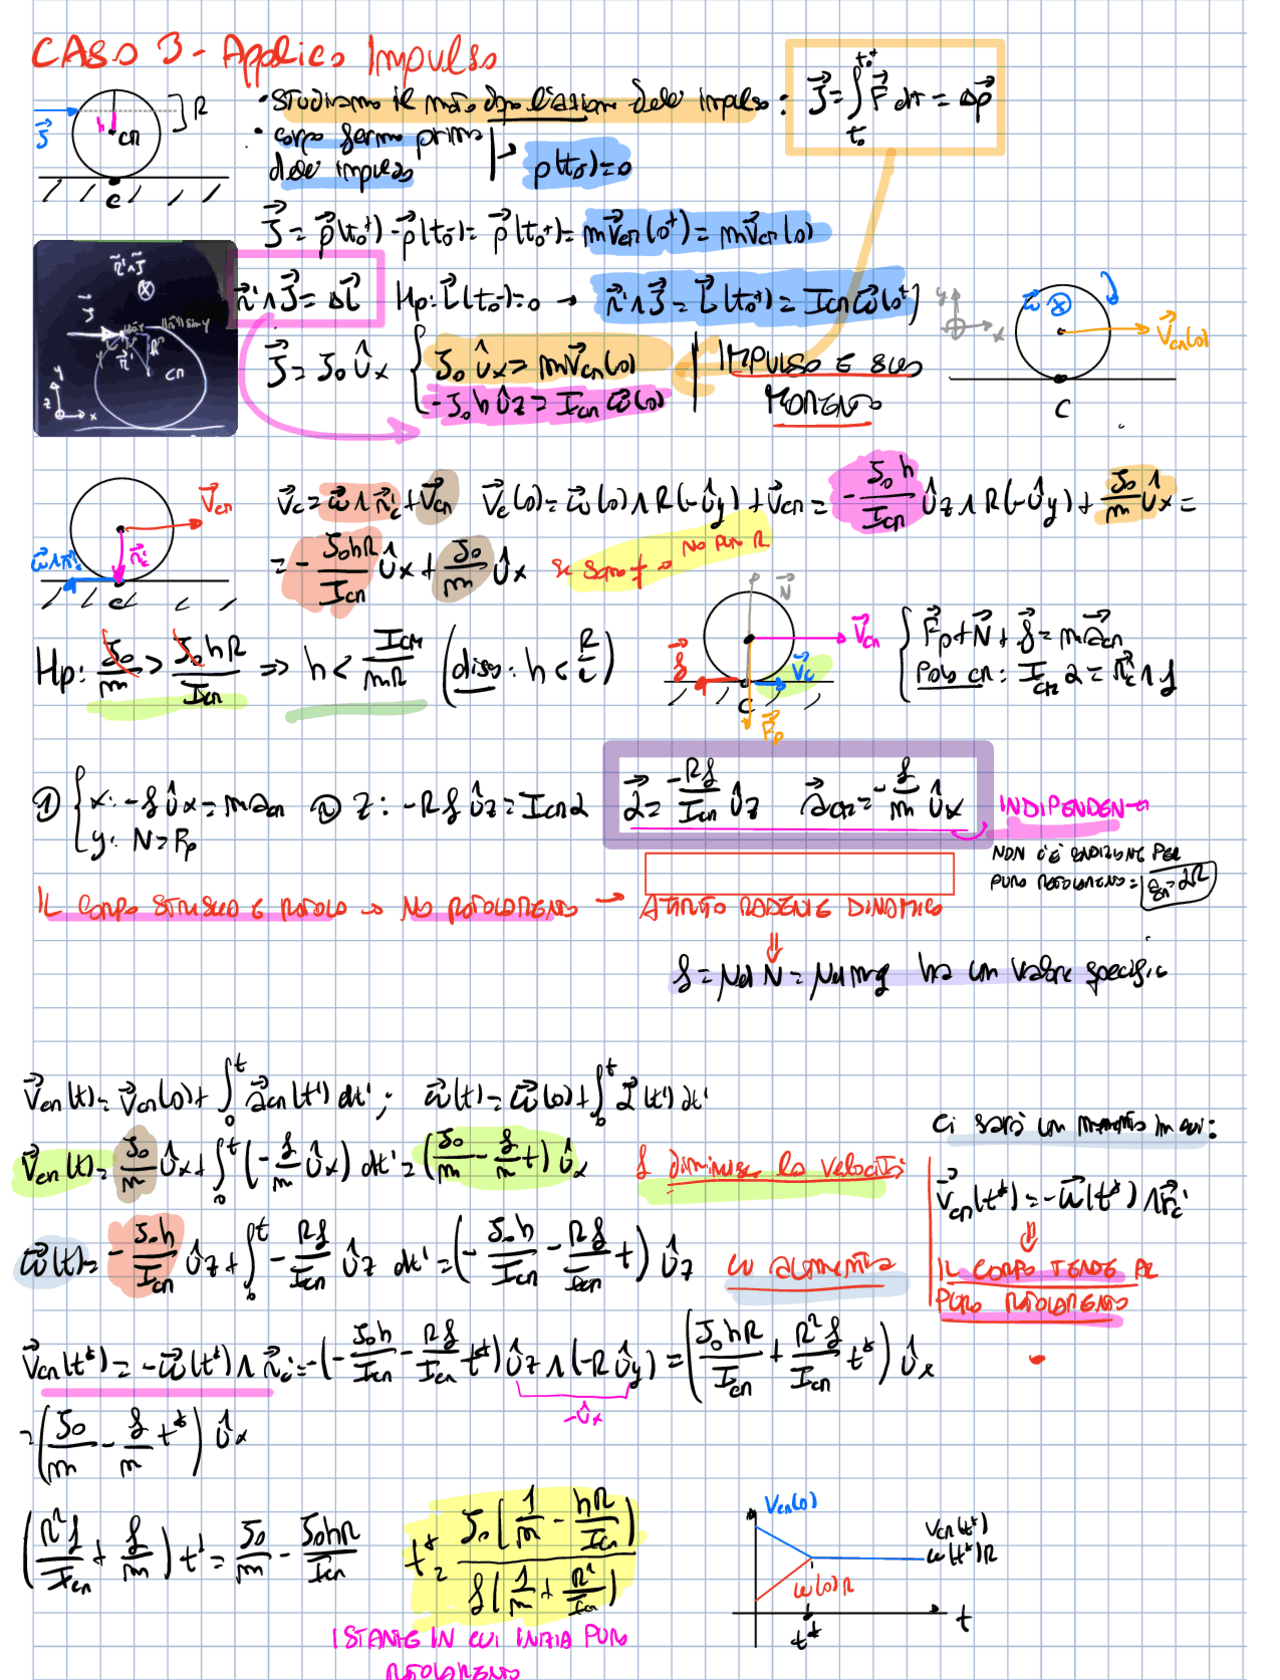 CASO 3 - Applico Impulso
J⃗ h CM R C
• studiamo il moto dopo l'azione dell'impulso: J⃗ = ∫_{t₀}^{t₀⁺} F⃗ dt = Δp⃗
• corpo fermo prima dell'impulso → p(t₀⁻)=0
J⃗ = p⃗(t₀⁺) - p⃗(t₀⁻) = p⃗(t₀⁺) = mV⃗cm(0⁺) = mV⃗cm(0)
r⃗'∧J⃗ = ΔL⃗ Hp: L⃗(t₀⁻)=0 → r⃗'∧J⃗ = L⃗(t₀⁺) = Icm ω⃗(0⁺)
J⃗ = J₀ûx { J₀ûx = mV⃗cm(0)
-J₀hûz = Icm ω⃗(0)
IMPULSO E SUO MOMENTO
ω⃗ ⊗ V⃗cm(0) C
V⃗cm r⃗'c ω⃗∧r⃗'c C
V⃗c = ω⃗∧r⃗'c + V⃗cm V⃗c(0) = ω⃗(0)∧R(-ûy) + V⃗cm = -J₀h/Icm ûz∧R(-ûy) + J₀/m ûx =
= -J₀hR/Icm ûx + J₀/m ûx se sono ≠ → NO PURO R
Hp: J₀/m > J₀hR/Icm ⇒ h < Icm/mR (disco: h < R/2)
N⃗ V⃗cm f⃗ V⃗c C F⃗p
{ F⃗p + N⃗ + f⃗ = ma⃗cm
Polo CM: Icm α = r⃗'c∧f
① { x: -fûx = macm ② z: -Rfûz = Icm α α⃗ = -Rf/Icm ûz a⃗cm = -f/m ûx
y: N = Fp
INDIPENDENTI
NON C'È CONDIZIONE PER
PURO ROTOLAMENTO = acm = αR
IL CORPO STRISCIA E ROTOLA → NO ROTOLAMENTO → ATTRITO RADENTE DINAMICO
⇓
f = μd N = μd mg ha un valore specifico
V⃗cm(t) = V⃗cm(0) + ∫₀ᵗ a⃗cm(t') dt'; ω⃗(t) = ω⃗(0) + ∫₀ᵗ α⃗(t') dt'
V⃗cm(t) = J₀/m ûx + ∫₀ᵗ (-f/m ûx) dt' = (J₀/m - f/m t) ûx f diminuisce la velocità
Ci sarà un momento in cui:
V⃗cm(t*) = -ω⃗(t*)∧r⃗'c
⇓
IL CORPO TENDE AL
PURO ROTOLAMENTO
ω⃗(t) = -J₀h/Icm ûz + ∫₀ᵗ -Rf/Icm ûz dt' = (-J₀h/Icm - Rf/Icm t) ûz ω aumenta
V⃗cm(t*) = -ω⃗(t*)∧r⃗'c = -(-J₀h/Icm - Rf/Icm t*) ûz∧(-Rûy) = (J₀hR/Icm + R²f/Icm t*) ûx
-ûx
= (J₀/m - f/m t*) ûx
(R²f/Icm + f/m) t' = J₀/m - J₀hR/Icm t* = J₀(1/m - hR/Icm) / f(1/m + R²/Icm)
ISTANTE IN CUI INIZIA PURO
ROTOLAMENTO
Vcm(0) Vcm(t*)
ω(t*)R
ω(0)R
t* t